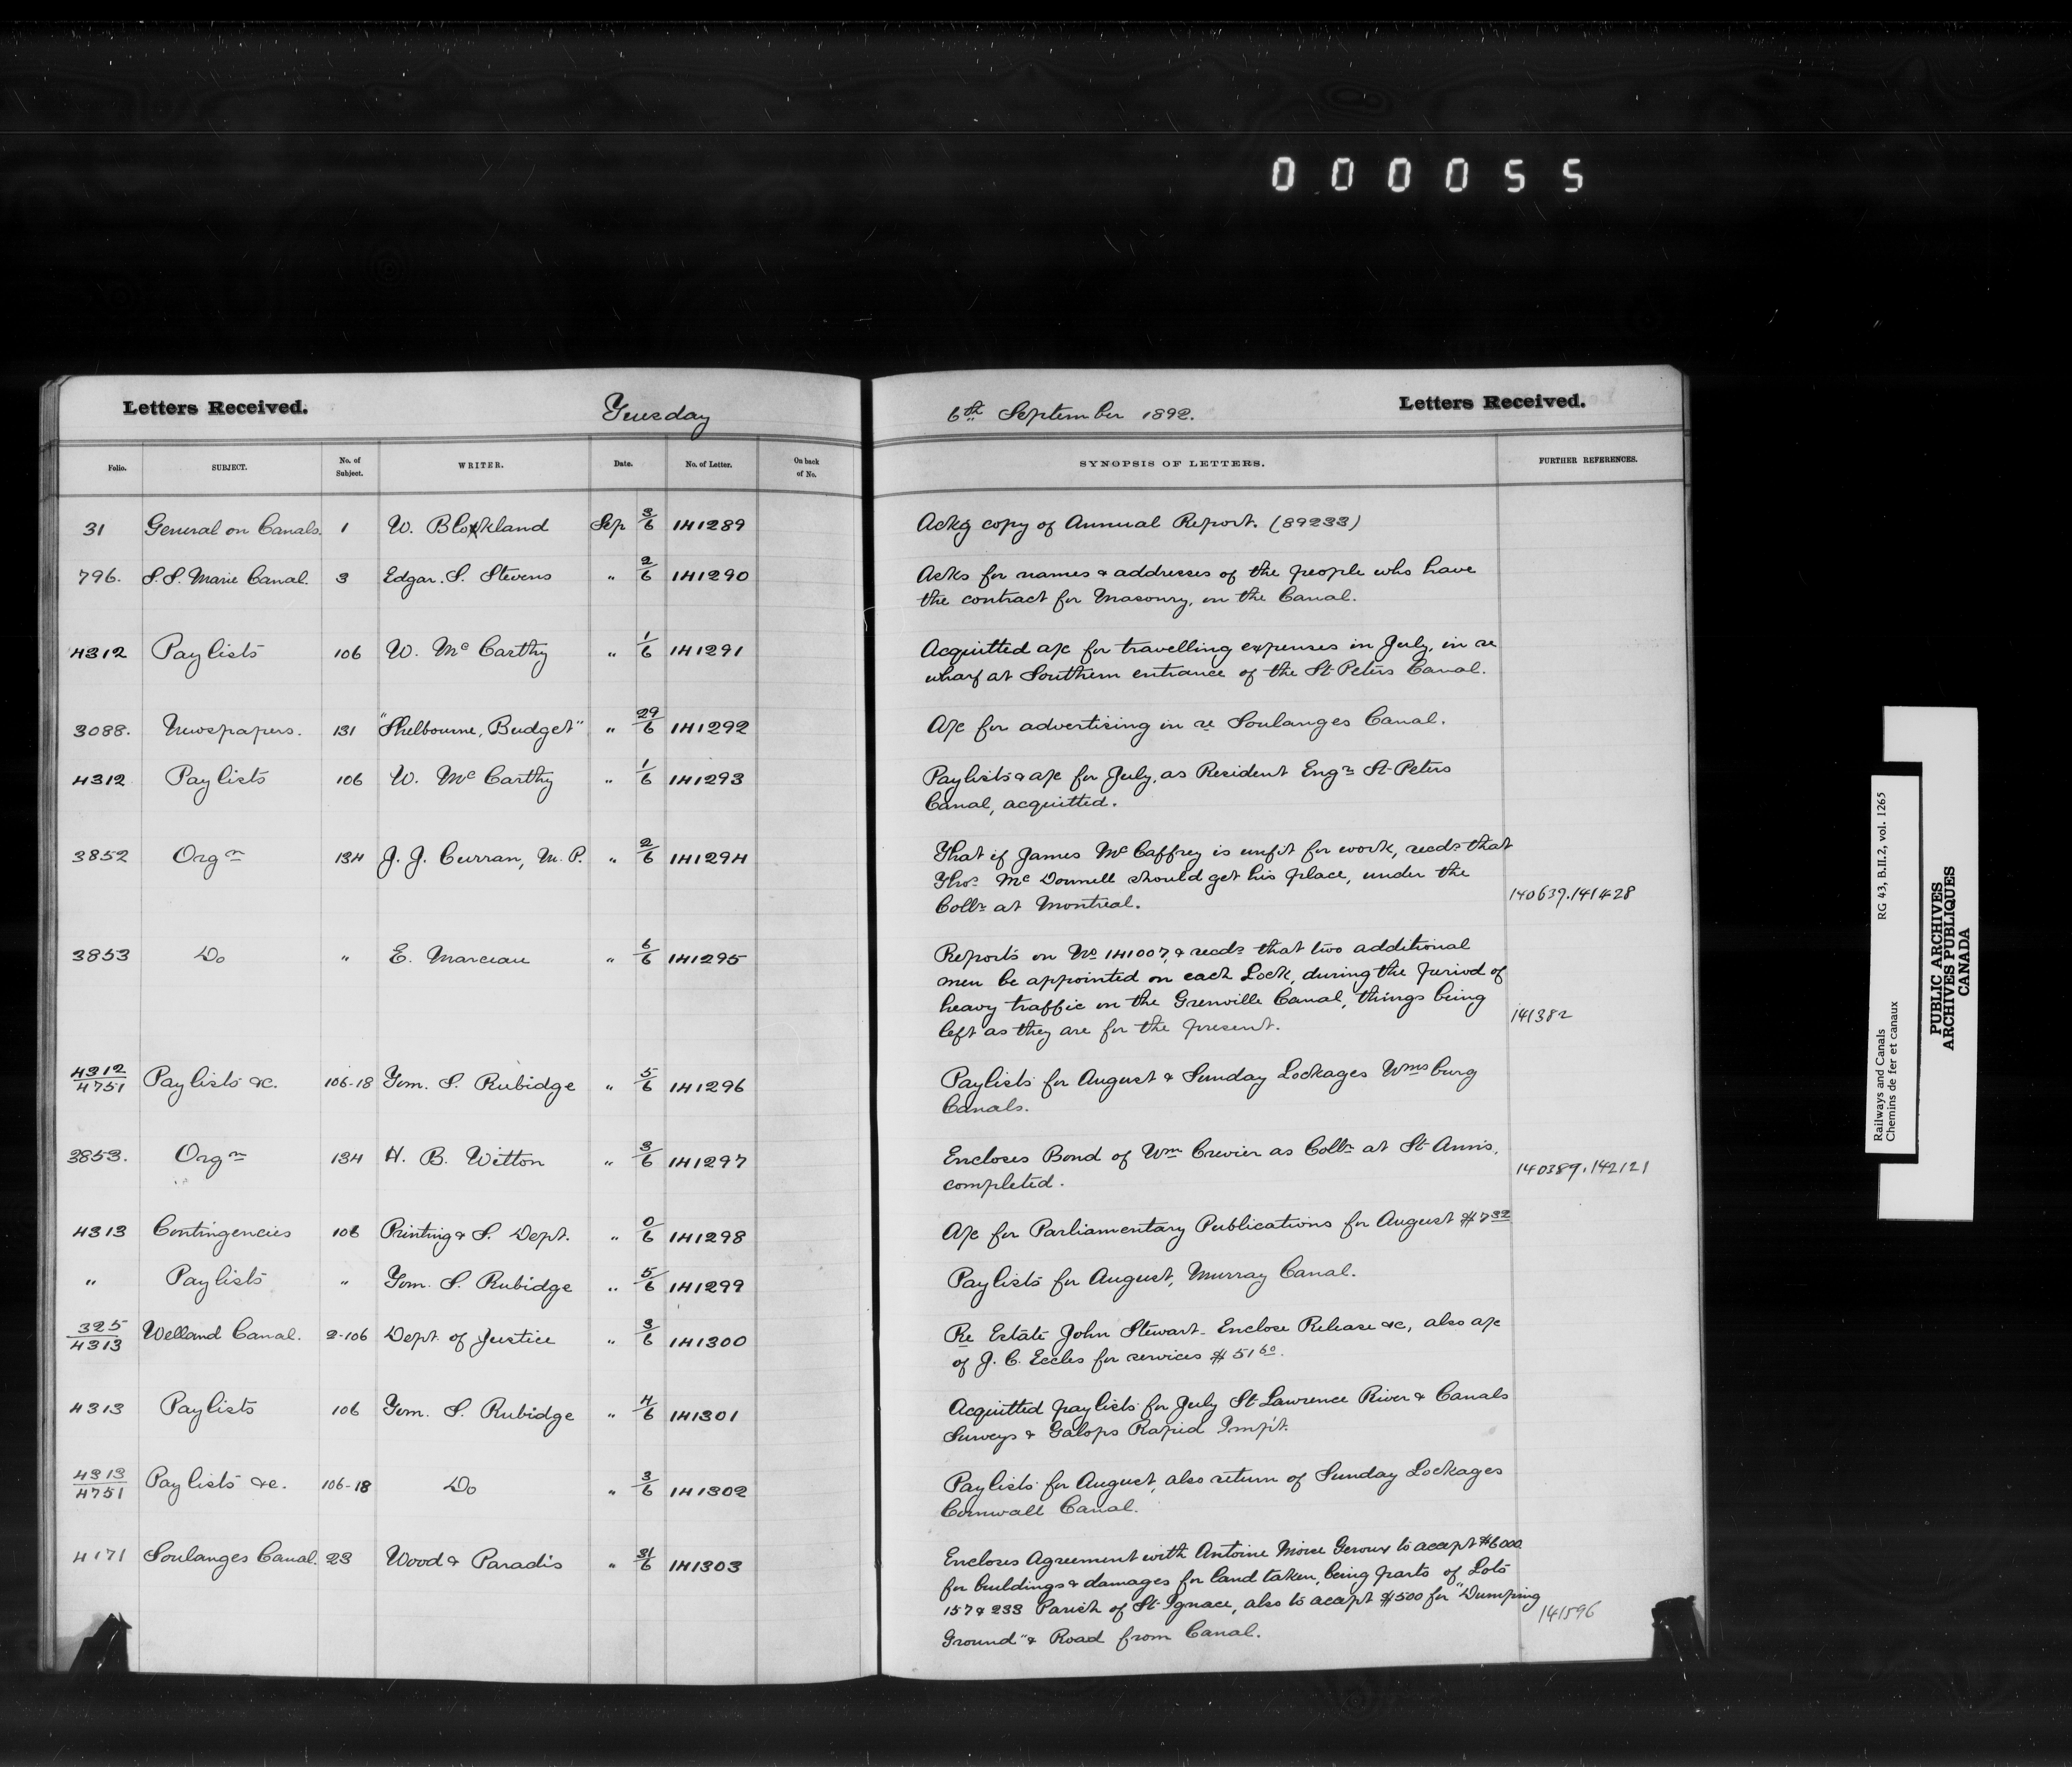 0 0 0 0 5 5
Letters Received. Tuesday 6th September 1892. Letters Received.
Folio. SUBJECT. No. of Subject. WRITER. Date. No. of Letter. On back of No. SYNOPSIS OF LETTERS. FURTHER REFERENCES.
31 General on Canals. 1 W. Blockland Sep 3/6 141289 Ackg copy of Annual Report. (89233)
796. S.S. Marie Canal. 3 Edgar. S. Stevens " 2/6 141290 Asks for names & addresses of the people who have
the contract for Masonry, on the Canal.
4312 Paylists 106 W. McCarthy " 1/6 141291 Acquitted a/c for travelling expenses in July, in re
wharf at Southern entrance of the St Peters Canal.
3088. Newspapers. 131 "Shelbourne, Budget" " 29/6 141292 A/c for advertising in re Soulanges Canal.
4312 Paylists 106 W. McCarthy " 1/6 141293 Paylists & a/c for July, as Resident Engr St Peters
Canal, acquitted.
3852 Orgn 134 J. J. Curran, M. P. " 2/6 141294 That if James McCaffrey is unfit for work, recds that
Thos McDonnell should get his place, under the
Collr at Montreal. 140639.141428
3853 Do " E. Marceau " 6/6 141295 Reports on No 141007, & recds that two additional
men be appointed on each Lock, during the period of
heavy traffic on the Grenville Canal, things being
left as they are for the present. 141382
4312/4751 Paylists &c. 106-18 Tom. S. Rubidge " 5/6 141296 Paylists for August & Sunday Lockages Wmsburg
Canals.
3853. Orgn 134 H. B. Witton " 3/6 141297 Encloses Bond of Wm Crevier as Collr at St Anns,
completed. 140389.142121
4313 Contingencies 106 Printing & S. Dept. " 0/6 141298 A/c for Parliamentary Publications for August $7.32
" Paylists " Tom. S. Rubidge " 5/6 141299 Paylists for August, Murray Canal.
325/4313 Welland Canal. 2-106 Dept. of Justice " 3/6 141300 Re Estate John Stewart - Enclose Release &c, also a/c
of J. C. Eccles for services $51.60.
4313 Paylists 106 Tom. S. Rubidge " 4/6 141301 Acquitted paylists for July St Lawrence River & Canals
Surveys & Galops Rapid Imp't.
4313/4751 Paylists &c. 106-18 Do " 3/6 141302 Paylists for August, also return of Sunday Lockages
Cornwall Canal.
4171 Soulanges Canal. 23 Wood & Paradis " 31/6 141303 Encloses Agreement with Antoine Moise Geroux to accept $6000
for buildings & damages for land taken, being parts of Lots
157 & 233 Parish of St Ignace, also to accept $500 for "Dumping
Ground" & Road from Canal. 141596
Railways and Canals RG 43, B.II.2, vol. 1265
Chemins de fer et canaux
PUBLIC ARCHIVES
ARCHIVES PUBLIQUES
CANADA